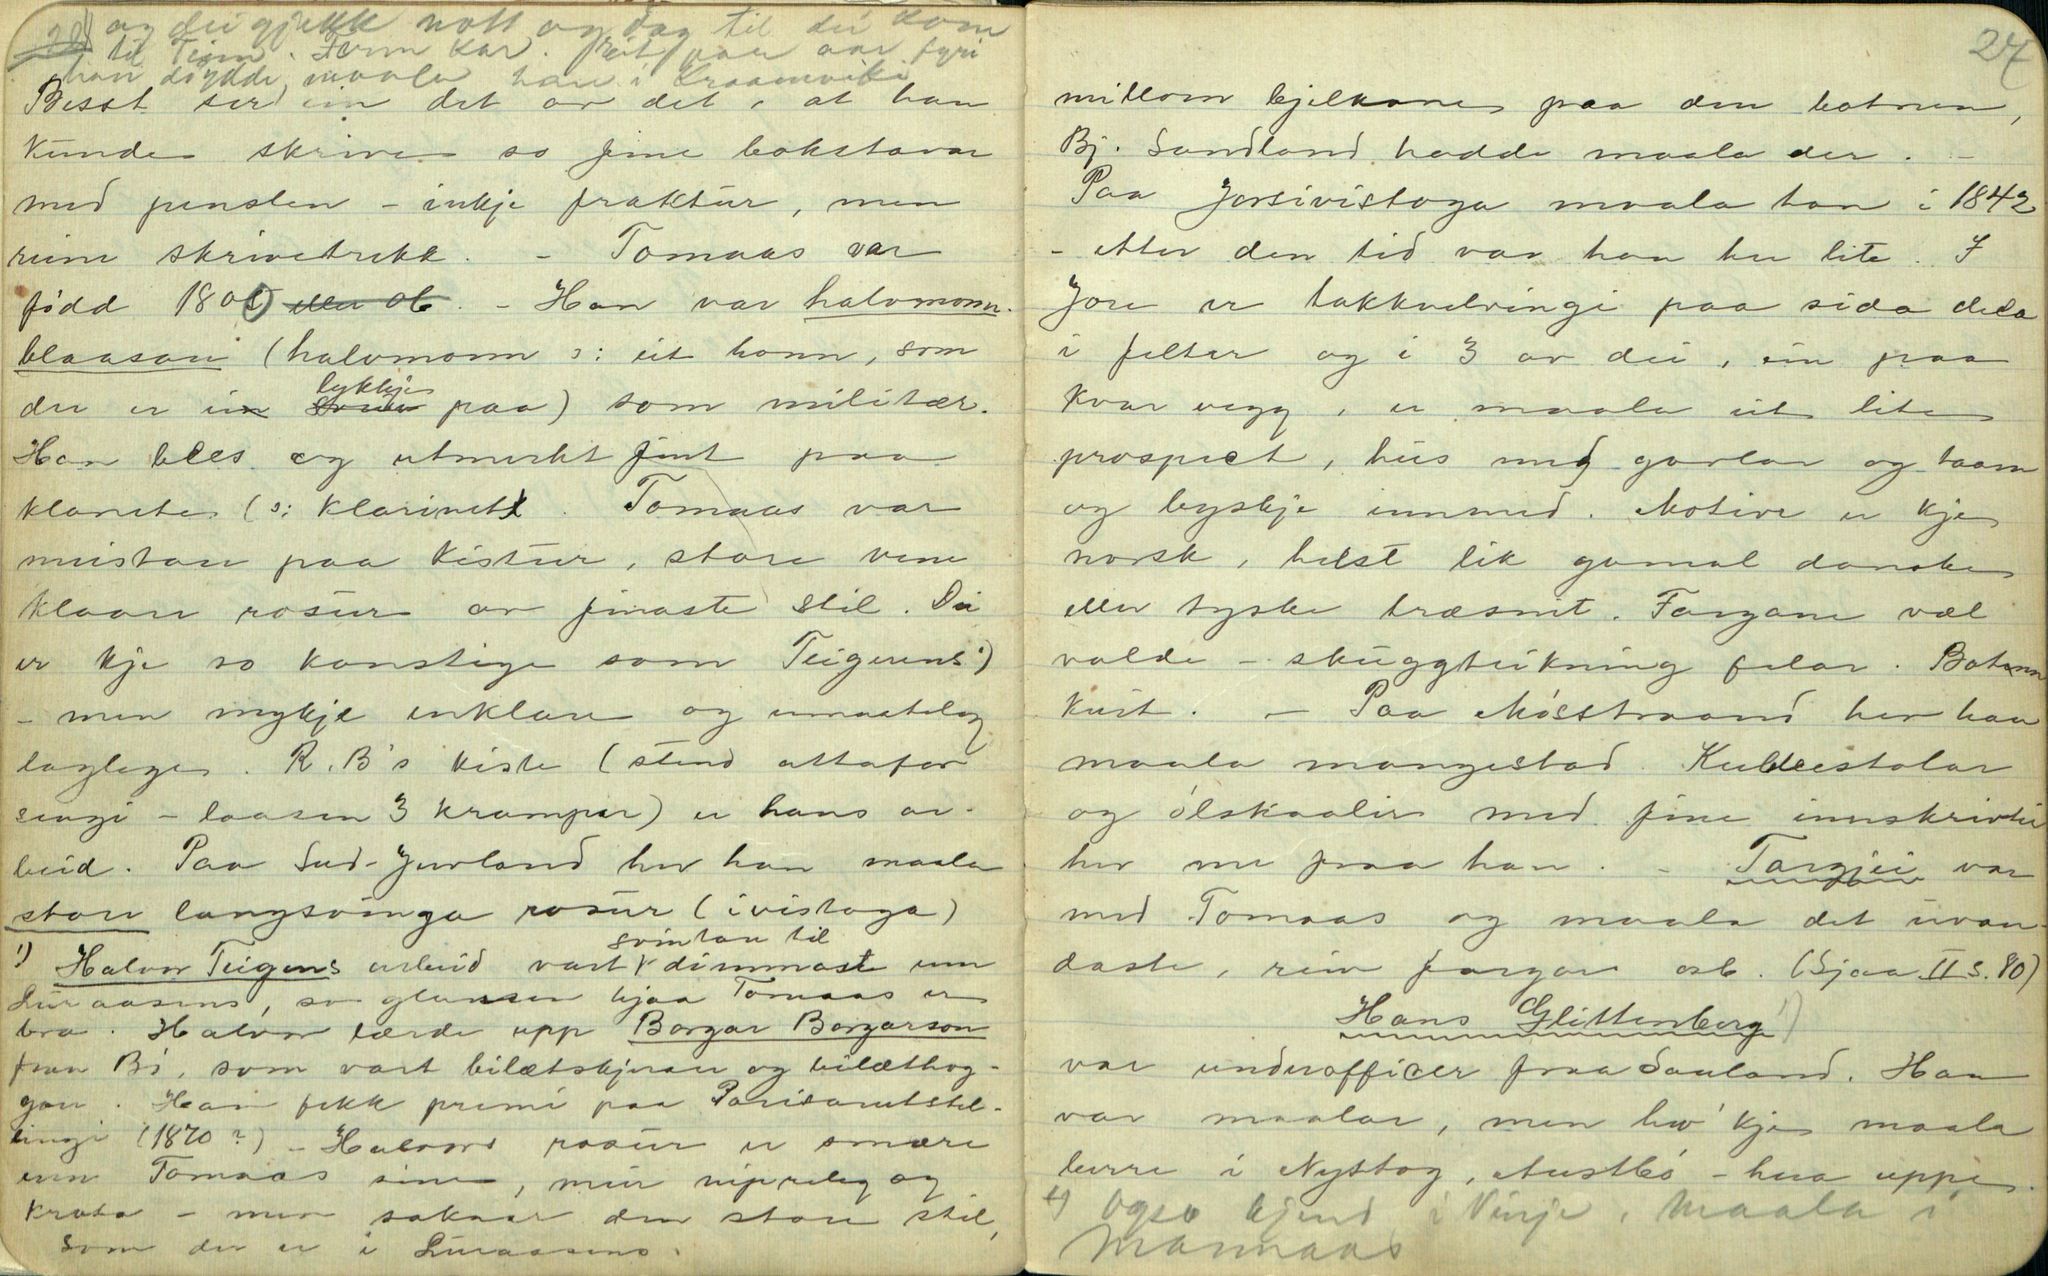 og dei gjekk nott og dag til dei kom
til Tinn. Form kar. Eit par aar fyri
han døydde, maala han i Kraamviki
Besst ser ein det av det, at han
kunde skrive so fine bokstavar
med penslen - inkje fraktur, men
reine skrivetrekk. - Tomaas var
født 1800 eller 06. - Han var halvmoon-
blaasar (halvmoon ɔ: eit honn, som
der er ein lykkje paa) som militær.
Han bles og utmerkt fint paa
klanete (ɔ: klarinett. Tomaas var
meistar paa kistur, store vene
klaare rosur av finaste stil. Dei
er kje so konstige som Teigens ¹)
- men mykje enklare og umaateleg
laglege. R. B's kiste (stend attafor
sengi - laasen 3 krampar) er hans ar-
beid. Paa Sud-Jurland hev han maala
store langsvinga rosur (i vistoga)
¹) Halvor Teigens arbeid vart svintare til dimmast enn
Luraasens, so glansen hjaa Tomaas er
bra. Halvor lærde upp Borgar Borgarson
fraa Bø, som vart bilætskjerar og bilæthog-
gar. Han fekk premi paa Parisarutstel-
lingi (1870?) - Halvors rosur er smære
enn Tomaas sine, mei nipreleg og
krota - men saknar den store stil,
som der er i Luraasens.
27
millom bjelkane paa den botnen,
Bj. Sandland hadde maala der. -
Paa Joreivistoga maala han i 1842
- etter den tid var han her lite. I
Jore er takkvelvingi paa sida dela
i felter og i 3 av dei, ein paa
kvar vegg, er maala eit lite
prospect, hus med gavlar og taarn
og byskje innmed. Motive er kje
norsk, helst lik gamal danske
eller tyske træsnit. Fargane væl
valde - skuggteikning felar. Botnen
kvit. - Paa Møsstraand hev han
maala mangestad. Kubbestolar
og ølskaalir med fine innskrifter
hev me fraa han. - Targjei var
med Tomaas og maala det uvan-
daste, reiv fargar osb. (Sjaa II s. 80)
Hans Glittenberg ¹)
var underofficer fraa Sauland. Han
var maalar, men hev' kje maala
berre i Nystog, Austbø - her uppe.
¹) Ogso kjend i Vinje, maala i
Mannaas